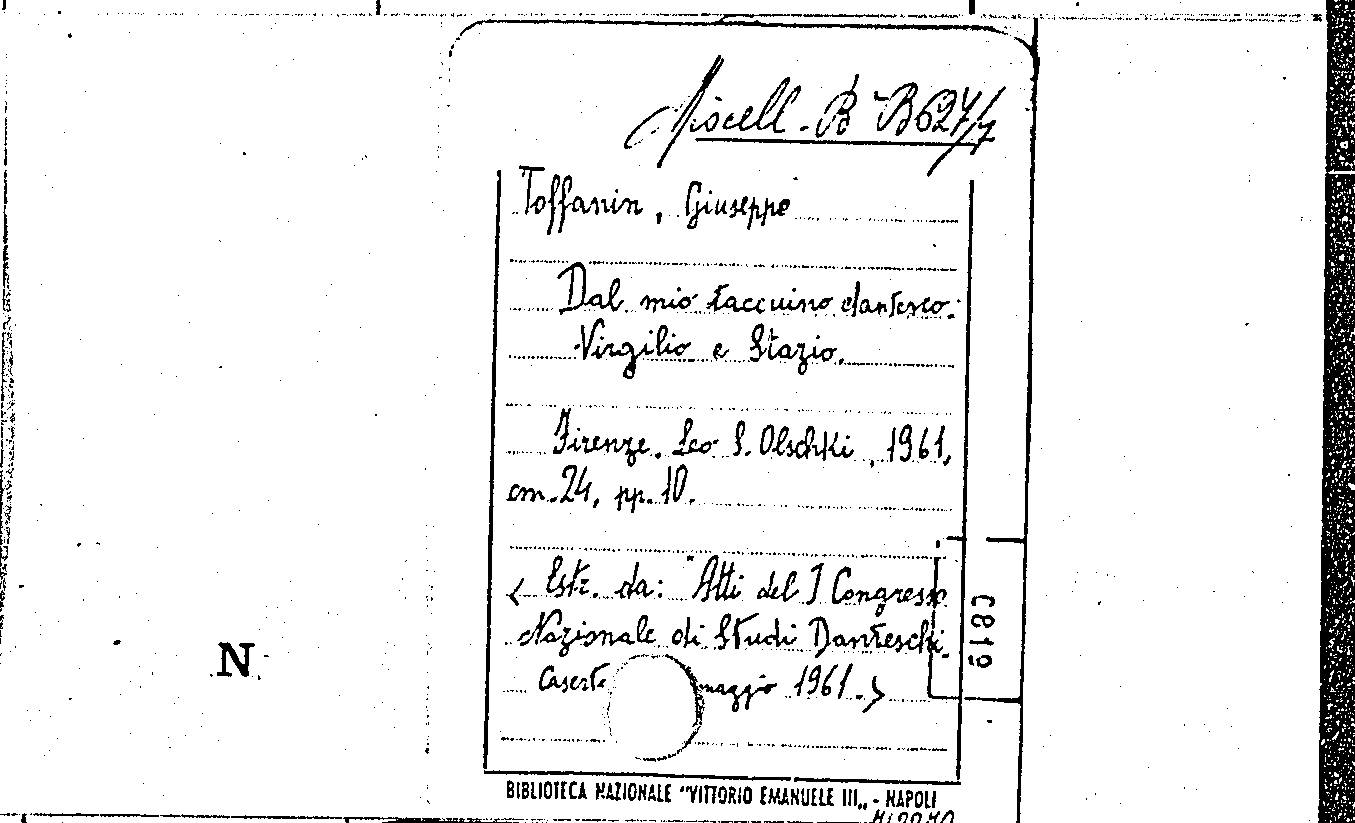 Miscell. B B627/7
Toffanin, Giuseppe
Dal mio taccuino dantesco:
Virgilio e Stazio.
Firenze. Leo S. Olschki, 1961,
cm. 24, pp. 10.
< Estr. da: "Atti del I Congresso
Nazionale di Studi Danteschi.
Caserta maggio 1961. >
C819
N
BIBLIOTECA NAZIONALE "VITTORIO EMANUELE III,, - NAPOLI